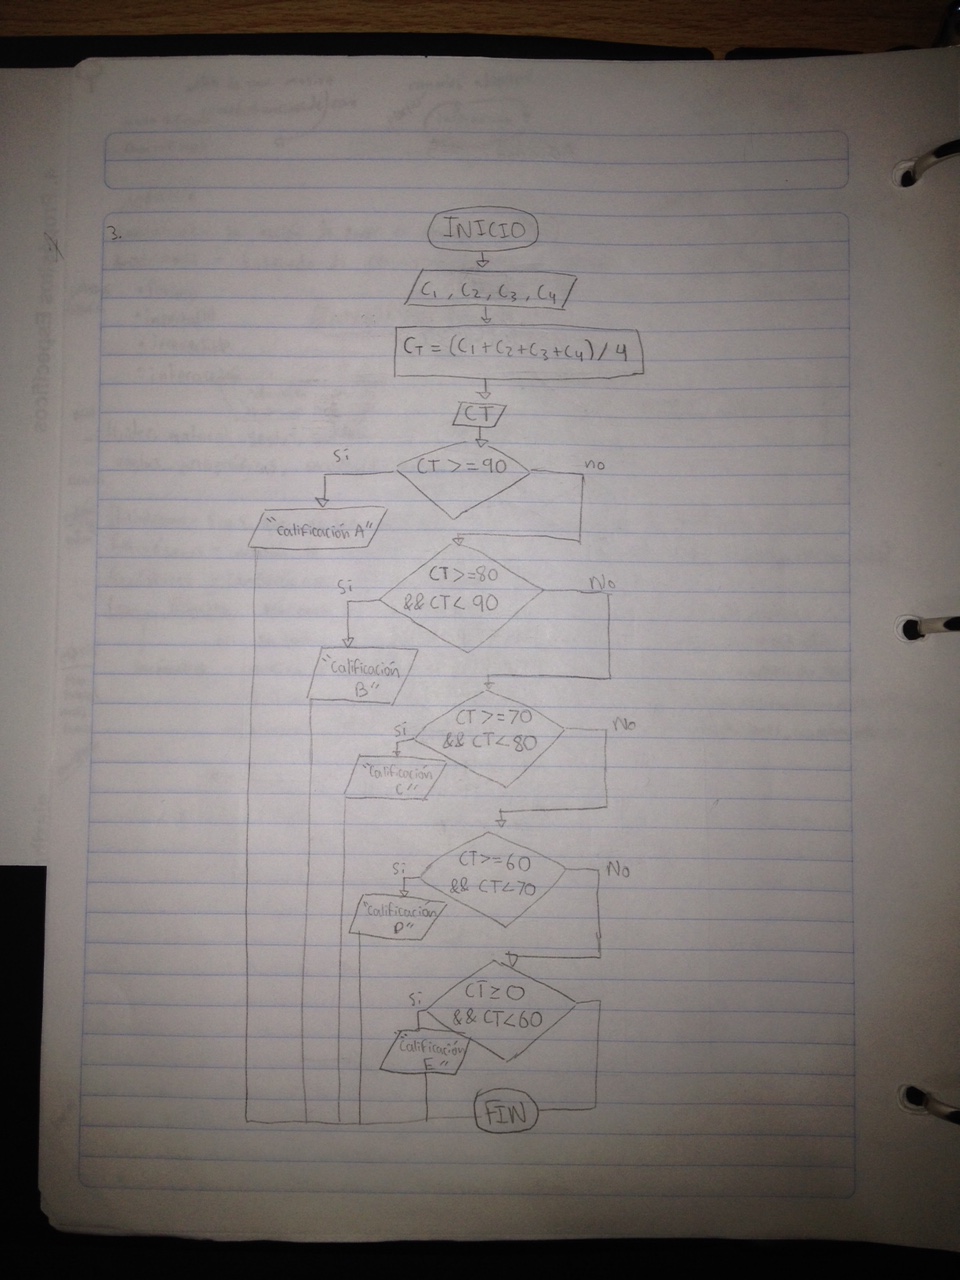 3.
INICIO
C1, C2, C3, C4
CT = (C1+C2+C3+C4) / 4
CT
CT >= 90
si
no
"Calificación A"
CT >= 80
&& CT < 90
Si
No
"Calificación
B"
CT >= 70
&& CT < 80
Si
No
"Calificación
C"
CT >= 60
&& CT < 70
Si
No
"Calificación
D"
CT ≥ 0
&& CT < 60
Si
"Calificación
E"
FIN
Específicos